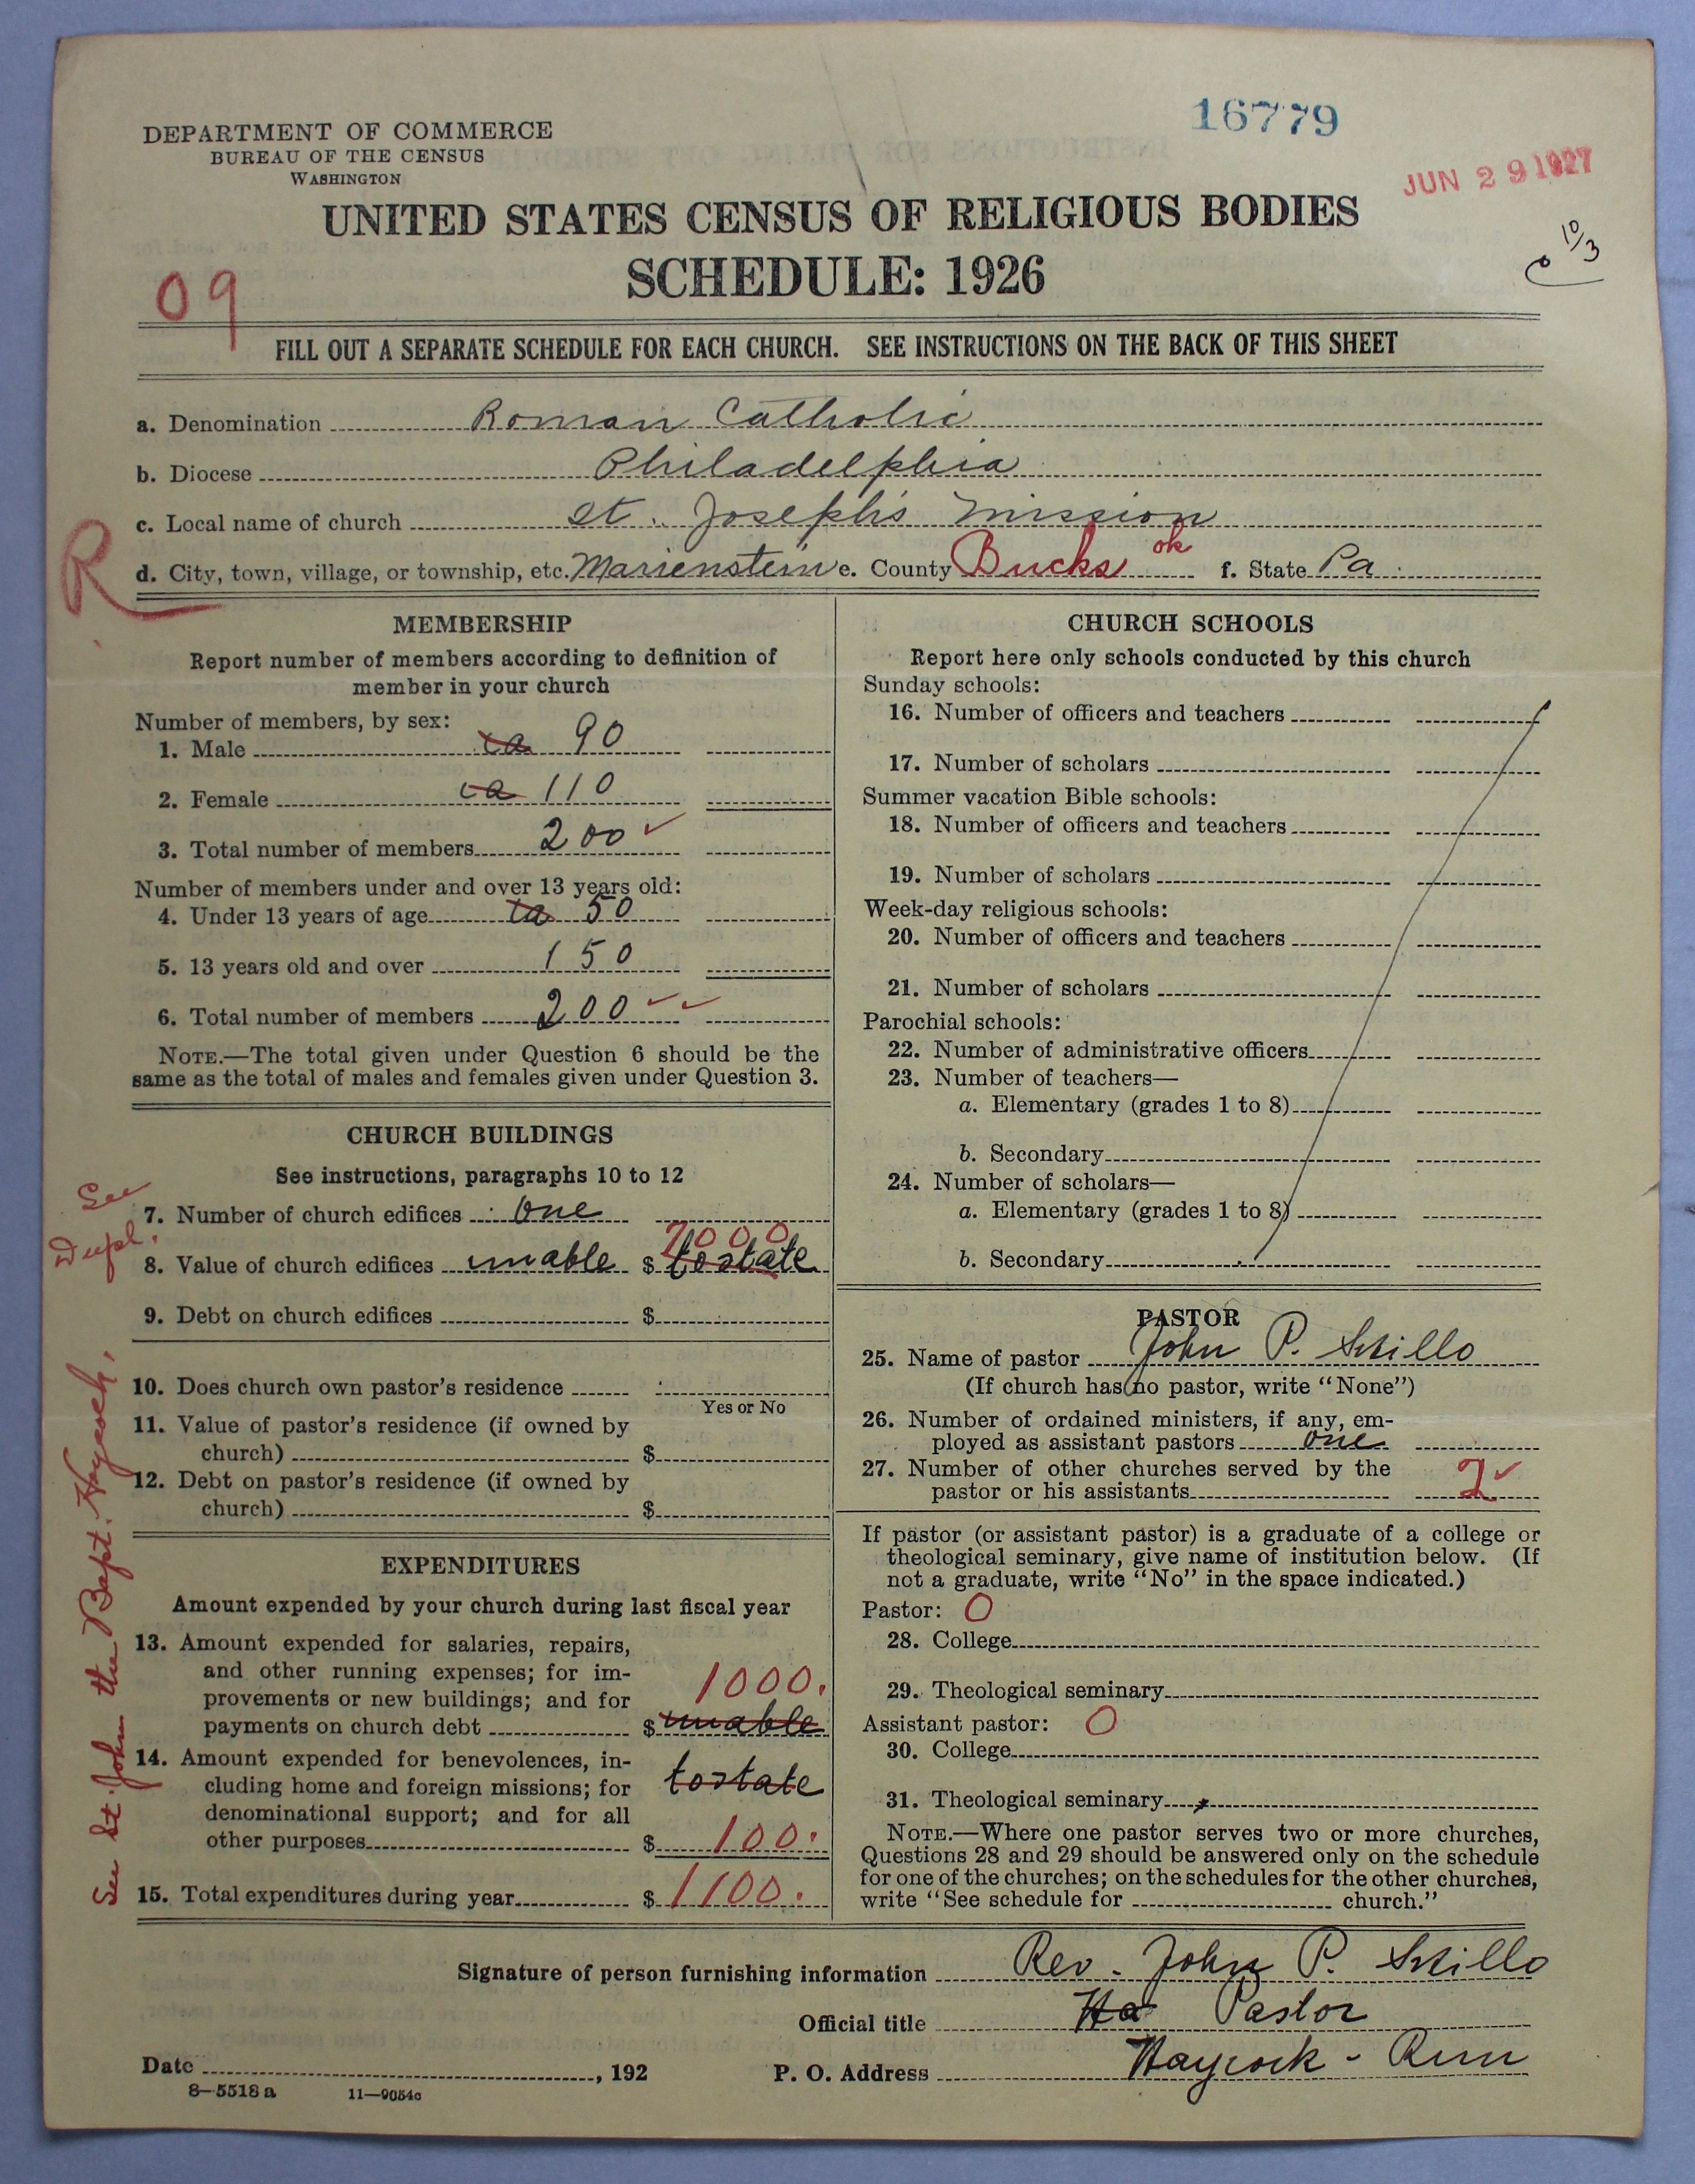 16779
DEPARTMENT OF COMMERCE
BUREAU OF THE CENSUS
WASHINGTON
JUN 29 1927
UNITED STATES CENSUS OF RELIGIOUS BODIES
10/3
SCHEDULE: 1926
09
FILL OUT A SEPARATE SCHEDULE FOR EACH CHURCH. SEE INSTRUCTIONS ON THE BACK OF THIS SHEET
a. Denomination Roman Catholic
b. Diocese Philadelphia
c. Local name of church St. Joseph's Mission
R
d. City, town, village, or township, etc. Marienstein e. County Bucks ok f. State Pa.
MEMBERSHIP
Report number of members according to definition of
member in your church
Number of members, by sex:
1. Male ca 90
2. Female ca 110
3. Total number of members 200 ✓
Number of members under and over 13 years old:
4. Under 13 years of age ca 50
5. 13 years old and over 150
6. Total number of members 200 ✓ ✓
NOTE.—The total given under Question 6 should be the
same as the total of males and females given under Question 3.
CHURCH BUILDINGS
See instructions, paragraphs 10 to 12
See Dupl.
7. Number of church edifices one
7000
8. Value of church edifices unable $ to state
9. Debt on church edifices $
10. Does church own pastor's residence
Yes or No
11. Value of pastor's residence (if owned by
church) $
12. Debt on pastor's residence (if owned by
church) $
EXPENDITURES
Amount expended by your church during last fiscal year
13. Amount expended for salaries, repairs,
and other running expenses; for im-
provements or new buildings; and for 1000.
payments on church debt $ unable
14. Amount expended for benevolences, in-
cluding home and foreign missions; for to state
denominational support; and for all
other purposes $ 100.
15. Total expenditures during year $ 1100.
See St. John the Bapt. Haycock,
CHURCH SCHOOLS
Report here only schools conducted by this church
Sunday schools:
16. Number of officers and teachers
17. Number of scholars
Summer vacation Bible schools:
18. Number of officers and teachers
19. Number of scholars
Week-day religious schools:
20. Number of officers and teachers
21. Number of scholars
Parochial schools:
22. Number of administrative officers
23. Number of teachers—
a. Elementary (grades 1 to 8)
b. Secondary
24. Number of scholars—
a. Elementary (grades 1 to 8)
b. Secondary
PASTOR
25. Name of pastor John P.
(If church has no pastor, write "None")
26. Number of ordained ministers, if any, em-
ployed as assistant pastors one
27. Number of other churches served by the
pastor or his assistants 2 ✓
If pastor (or assistant pastor) is a graduate of a college or
theological seminary, give name of institution below. (If
not a graduate, write "No" in the space indicated.)
Pastor: O
28. College
29. Theological seminary
Assistant pastor: O
30. College
31. Theological seminary
NOTE.—Where one pastor serves two or more churches,
Questions 28 and 29 should be answered only on the schedule
for one of the churches; on the schedules for the other churches,
write "See schedule for church."
Signature of person furnishing information Rev. John P.
Official title Ha Pastor
Date , 192 P. O. Address Haycock - Run
8—5518 a 11—9054c